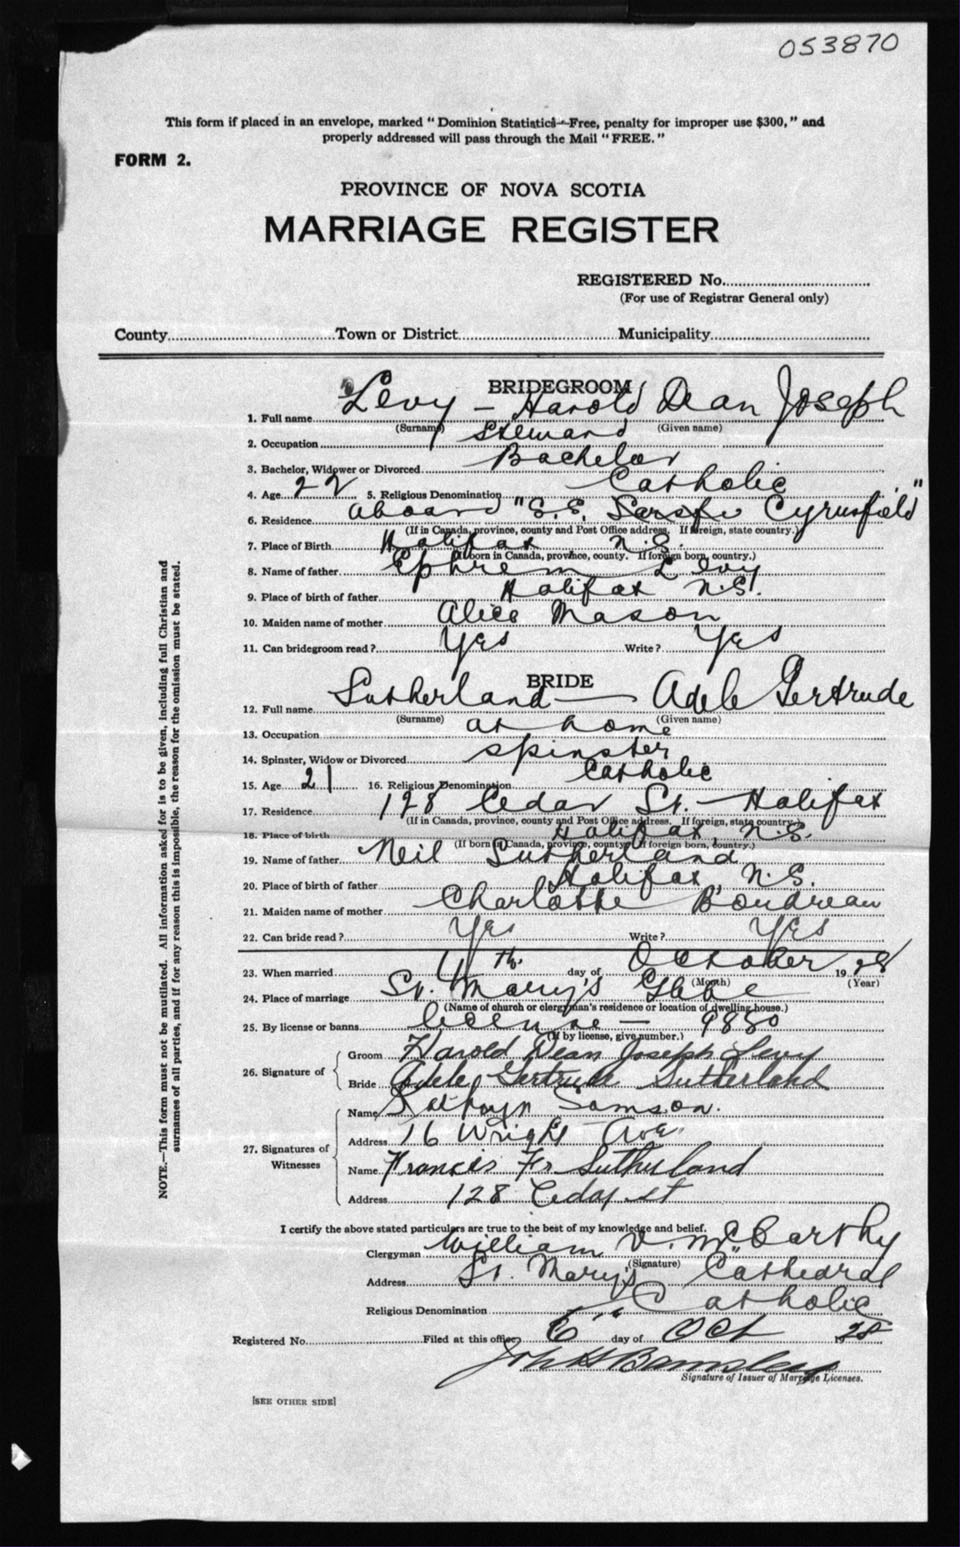 053870
This form if placed in an envelope, marked "Dominion Statistics—Free, penalty for improper use $300," and
properly addressed will pass through the Mail "FREE."
FORM 2.
PROVINCE OF NOVA SCOTIA
MARRIAGE REGISTER
REGISTERED No.
(For use of Registrar General only)
County Town or District Municipality
BRIDEGROOM
1. Full name Levy – Harold Dean Joseph
(Surname) (Given name)
2. Occupation Steward
3. Bachelor, Widower or Divorced Bachelor
4. Age 22 5. Religious Denomination Catholic
6. Residence aboard "S.S. Cyrusfield"
(If in Canada, province, county and Post Office address. If foreign, state country.)
7. Place of Birth Halifax N.S.
(If born in Canada, province, county. If foreign born, country.)
8. Name of father Ephrem Levy
9. Place of birth of father Halifax N.S.
10. Maiden name of mother Alice Mason
11. Can bridegroom read? Yes Write? Yes
BRIDE
12. Full name Sutherland — Adele Gertrude
(Surname) (Given name)
13. Occupation at home
14. Spinster, Widow or Divorced spinster
15. Age 21 16. Religious Denomination Catholic
17. Residence 128 Cedar St. – Halifax
(If in Canada, province, county and Post Office address. If foreign, state country.)
18. Place of birth Halifax, N.S.
(If born in Canada, province, county. If foreign born, country.)
19. Name of father Neil Sutherland
20. Place of birth of father Halifax, N.S.
21. Maiden name of mother Charlotte Boudreau
22. Can bride read? Yes Write? Yes
23. When married day of October 1928
(Month) (Year)
24. Place of marriage St. Mary's Glebe
(Name of church or clergyman's residence or location of dwelling house.)
25. By license or banns license — 9880
(If by license, give number.)
26. Signature of
Groom Harold Dean Joseph Levy
Bride Adele Gertrude Sutherland
27. Signatures of Witnesses
Name Kathryn Samson.
Address 16 Wright Ave.
Name Francis Sutherland
Address 128 Cedar st
I certify the above stated particulars are true to the best of my knowledge and belief.
Clergyman William V. McCarthy
(Signature)
Address St. Mary's Cathedral
Religious Denomination Catholic
Registered No. Filed at this office 6" day of Oct 1928
John H
Signature of Issuer of Marriage Licenses.
[SEE OTHER SIDE]
NOTE.—This form must not be mutilated. All information asked for is to be given, including full Christian and
surnames of all parties, and if for any reason this is impossible, the reason for the omission must be stated.